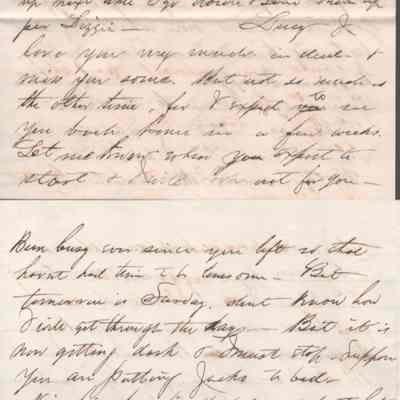 up next time I go down & send them up
per Lizzie — Lucy I
love you very much indeed &
miss you some. But not so much as
the other time, for I expect to see
you back home in a few weeks.
Let me know when you expect to
start & I will look out for you —
Been busy ever since you left so that
havnt had time to be lonesome — But
tomorrow is Sunday, dont know how
I will get through the day — But it is
now getting dark & I must stop. Suppose
you are putting Jacks to bed —